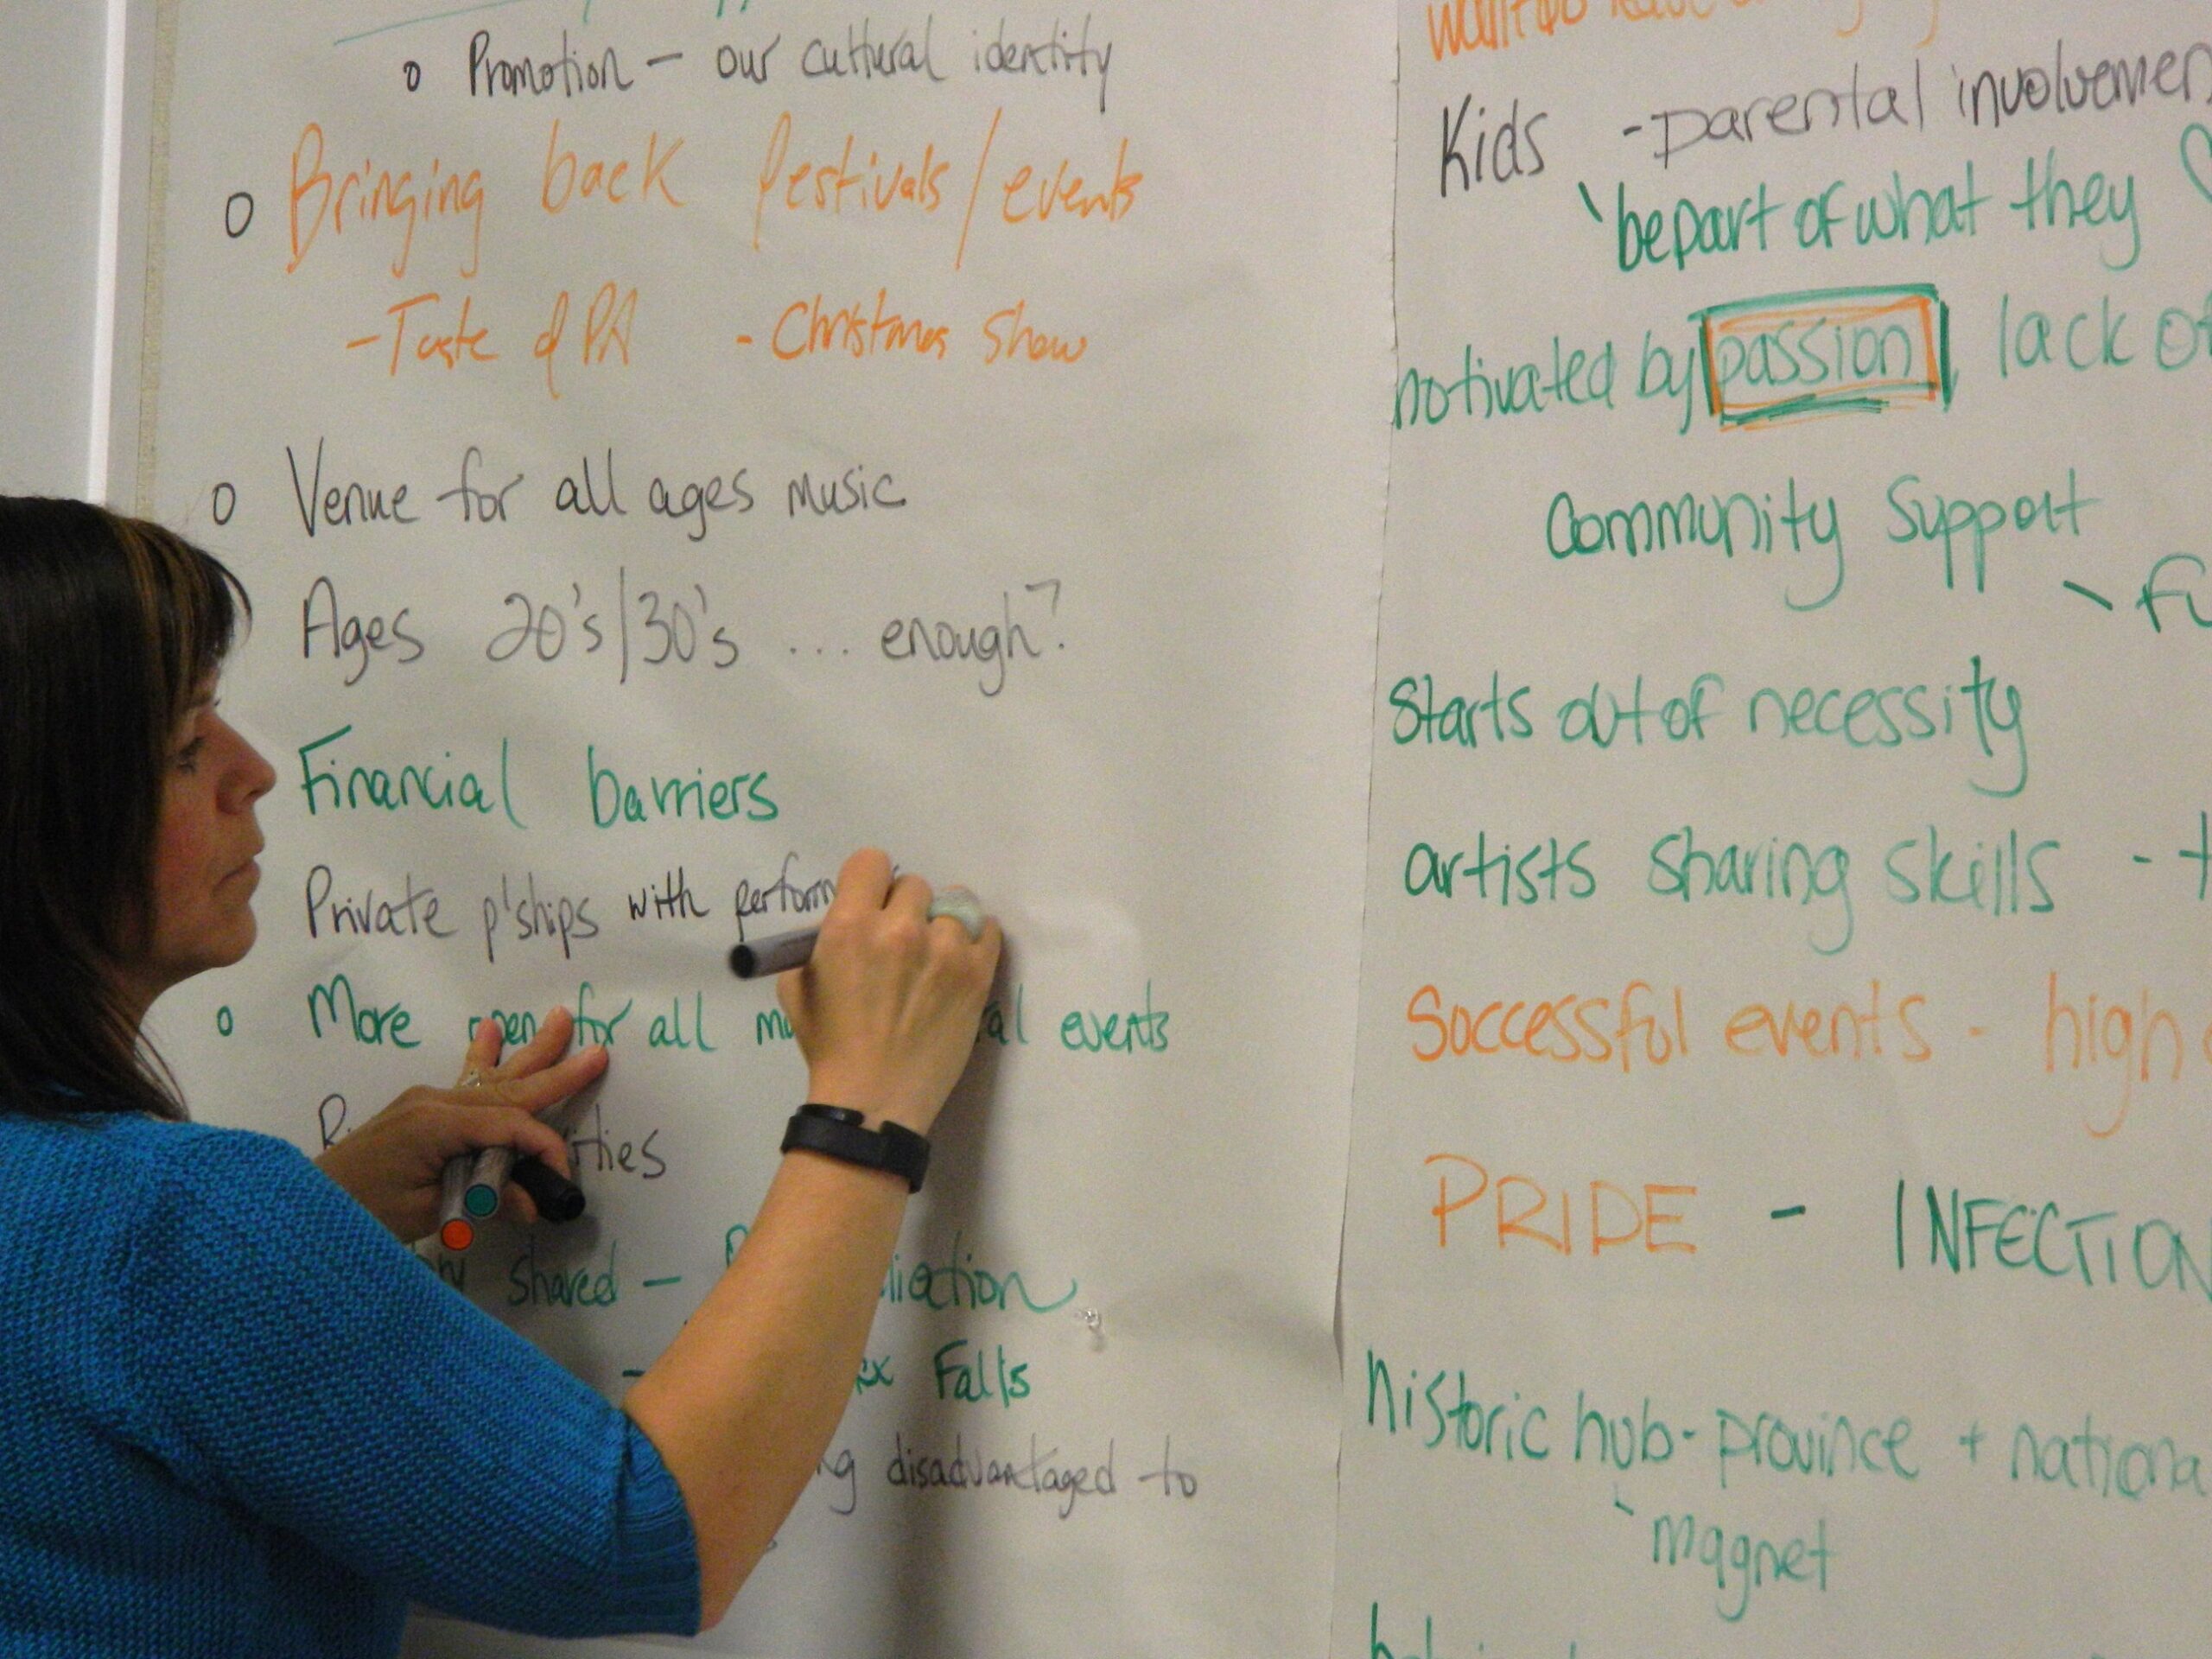 o Promotion - our cultural identity
o Bringing back festivals/events
- Taste of PA - Christmas Show
o Venue for all ages music
Ages 20's/30's ... enough?
Financial barriers
Private p'ships with perform
o More open for all events
shared -
- Falls
disadvantaged to
Kids - parental
be part of what they
motivated by passion, lack of
Community Support
Starts out of necessity
artists sharing skills -
Successful events - high
PRIDE - INFECTION
historic hub - province +
magnet